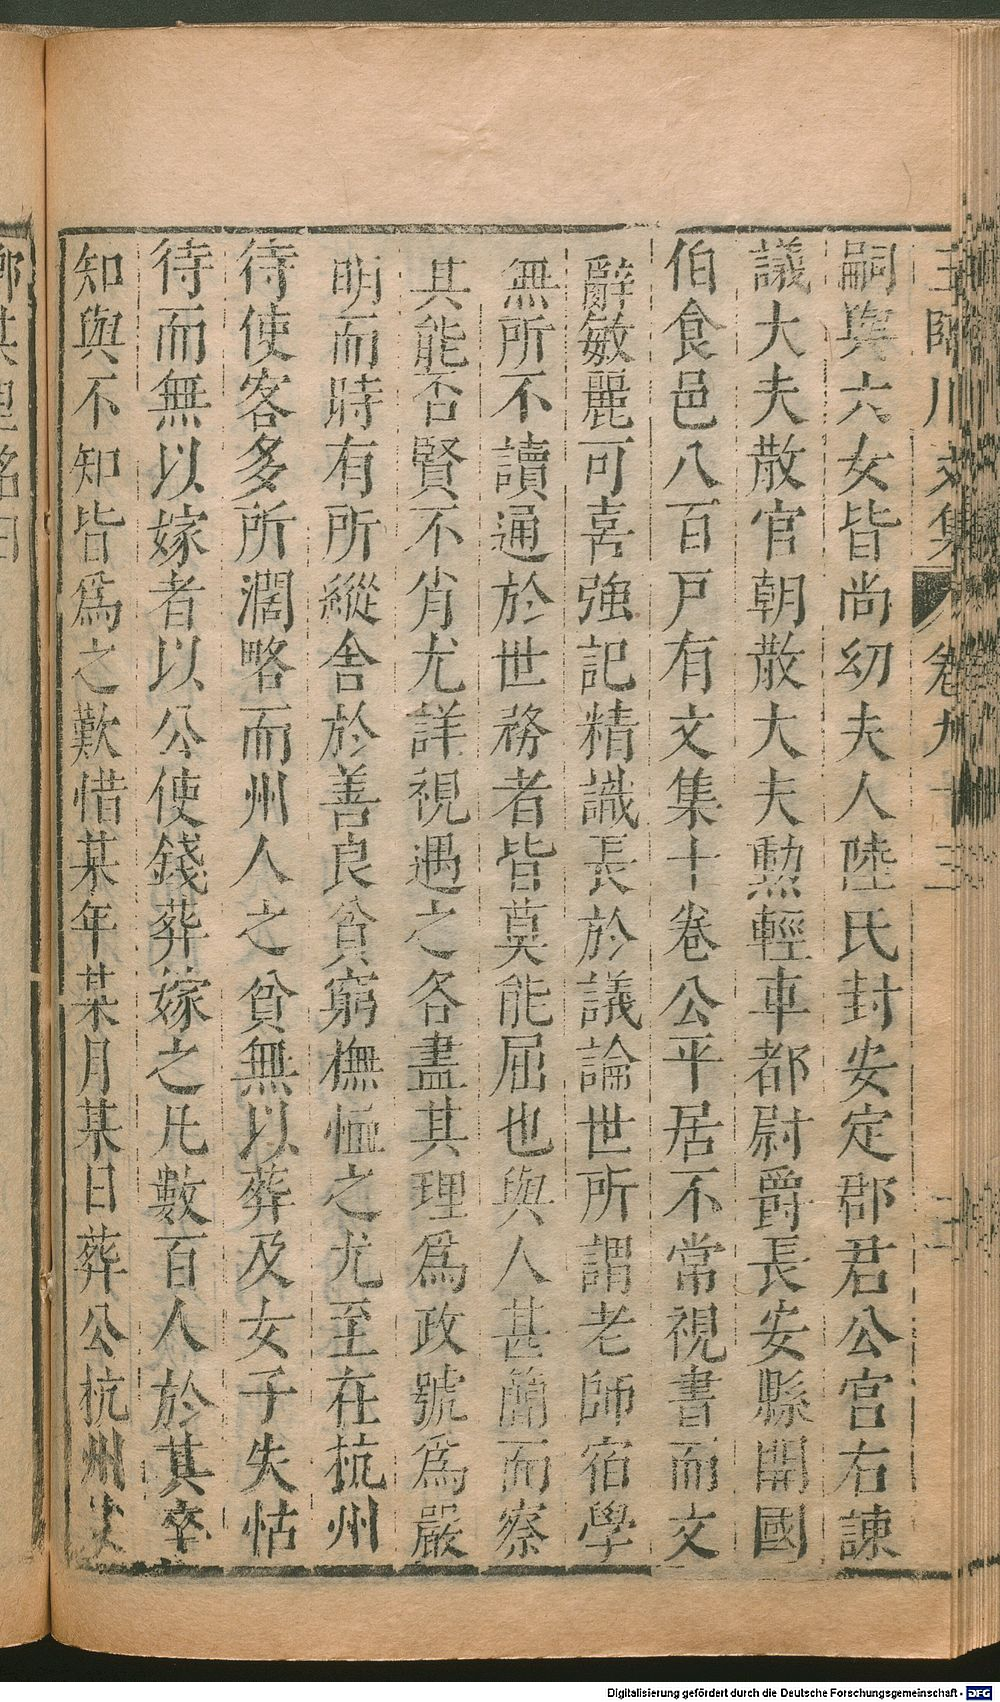 王臨川文集 卷九十三
嗣與六女皆尚幼夫人陸氏封安定郡君公官右諫
議大夫散官朝散大夫勲輕車都尉爵長安縣開國
伯食邑八百戸有文集十卷公平居不常視書而文
辭敏麗可喜強記精識長於議論世所謂老師宿學
無所不讀通於世務者皆莫能屈也與人甚簡而察
其能否賢不肖尤詳視遇之各盡其理爲政號爲嚴
明而時有所縱舍於善良貧窮撫恤之尤至在杭州
待使客多所濶略而州人之貧無以葬及女子失怙
待而無以嫁者以公使錢葬嫁之凡數百人於其卒
知與不知皆爲之歎惜某年某月某日葬公杭州
Digitalisierung gefördert durch die Deutsche Forschungsgemeinschaft - DFG